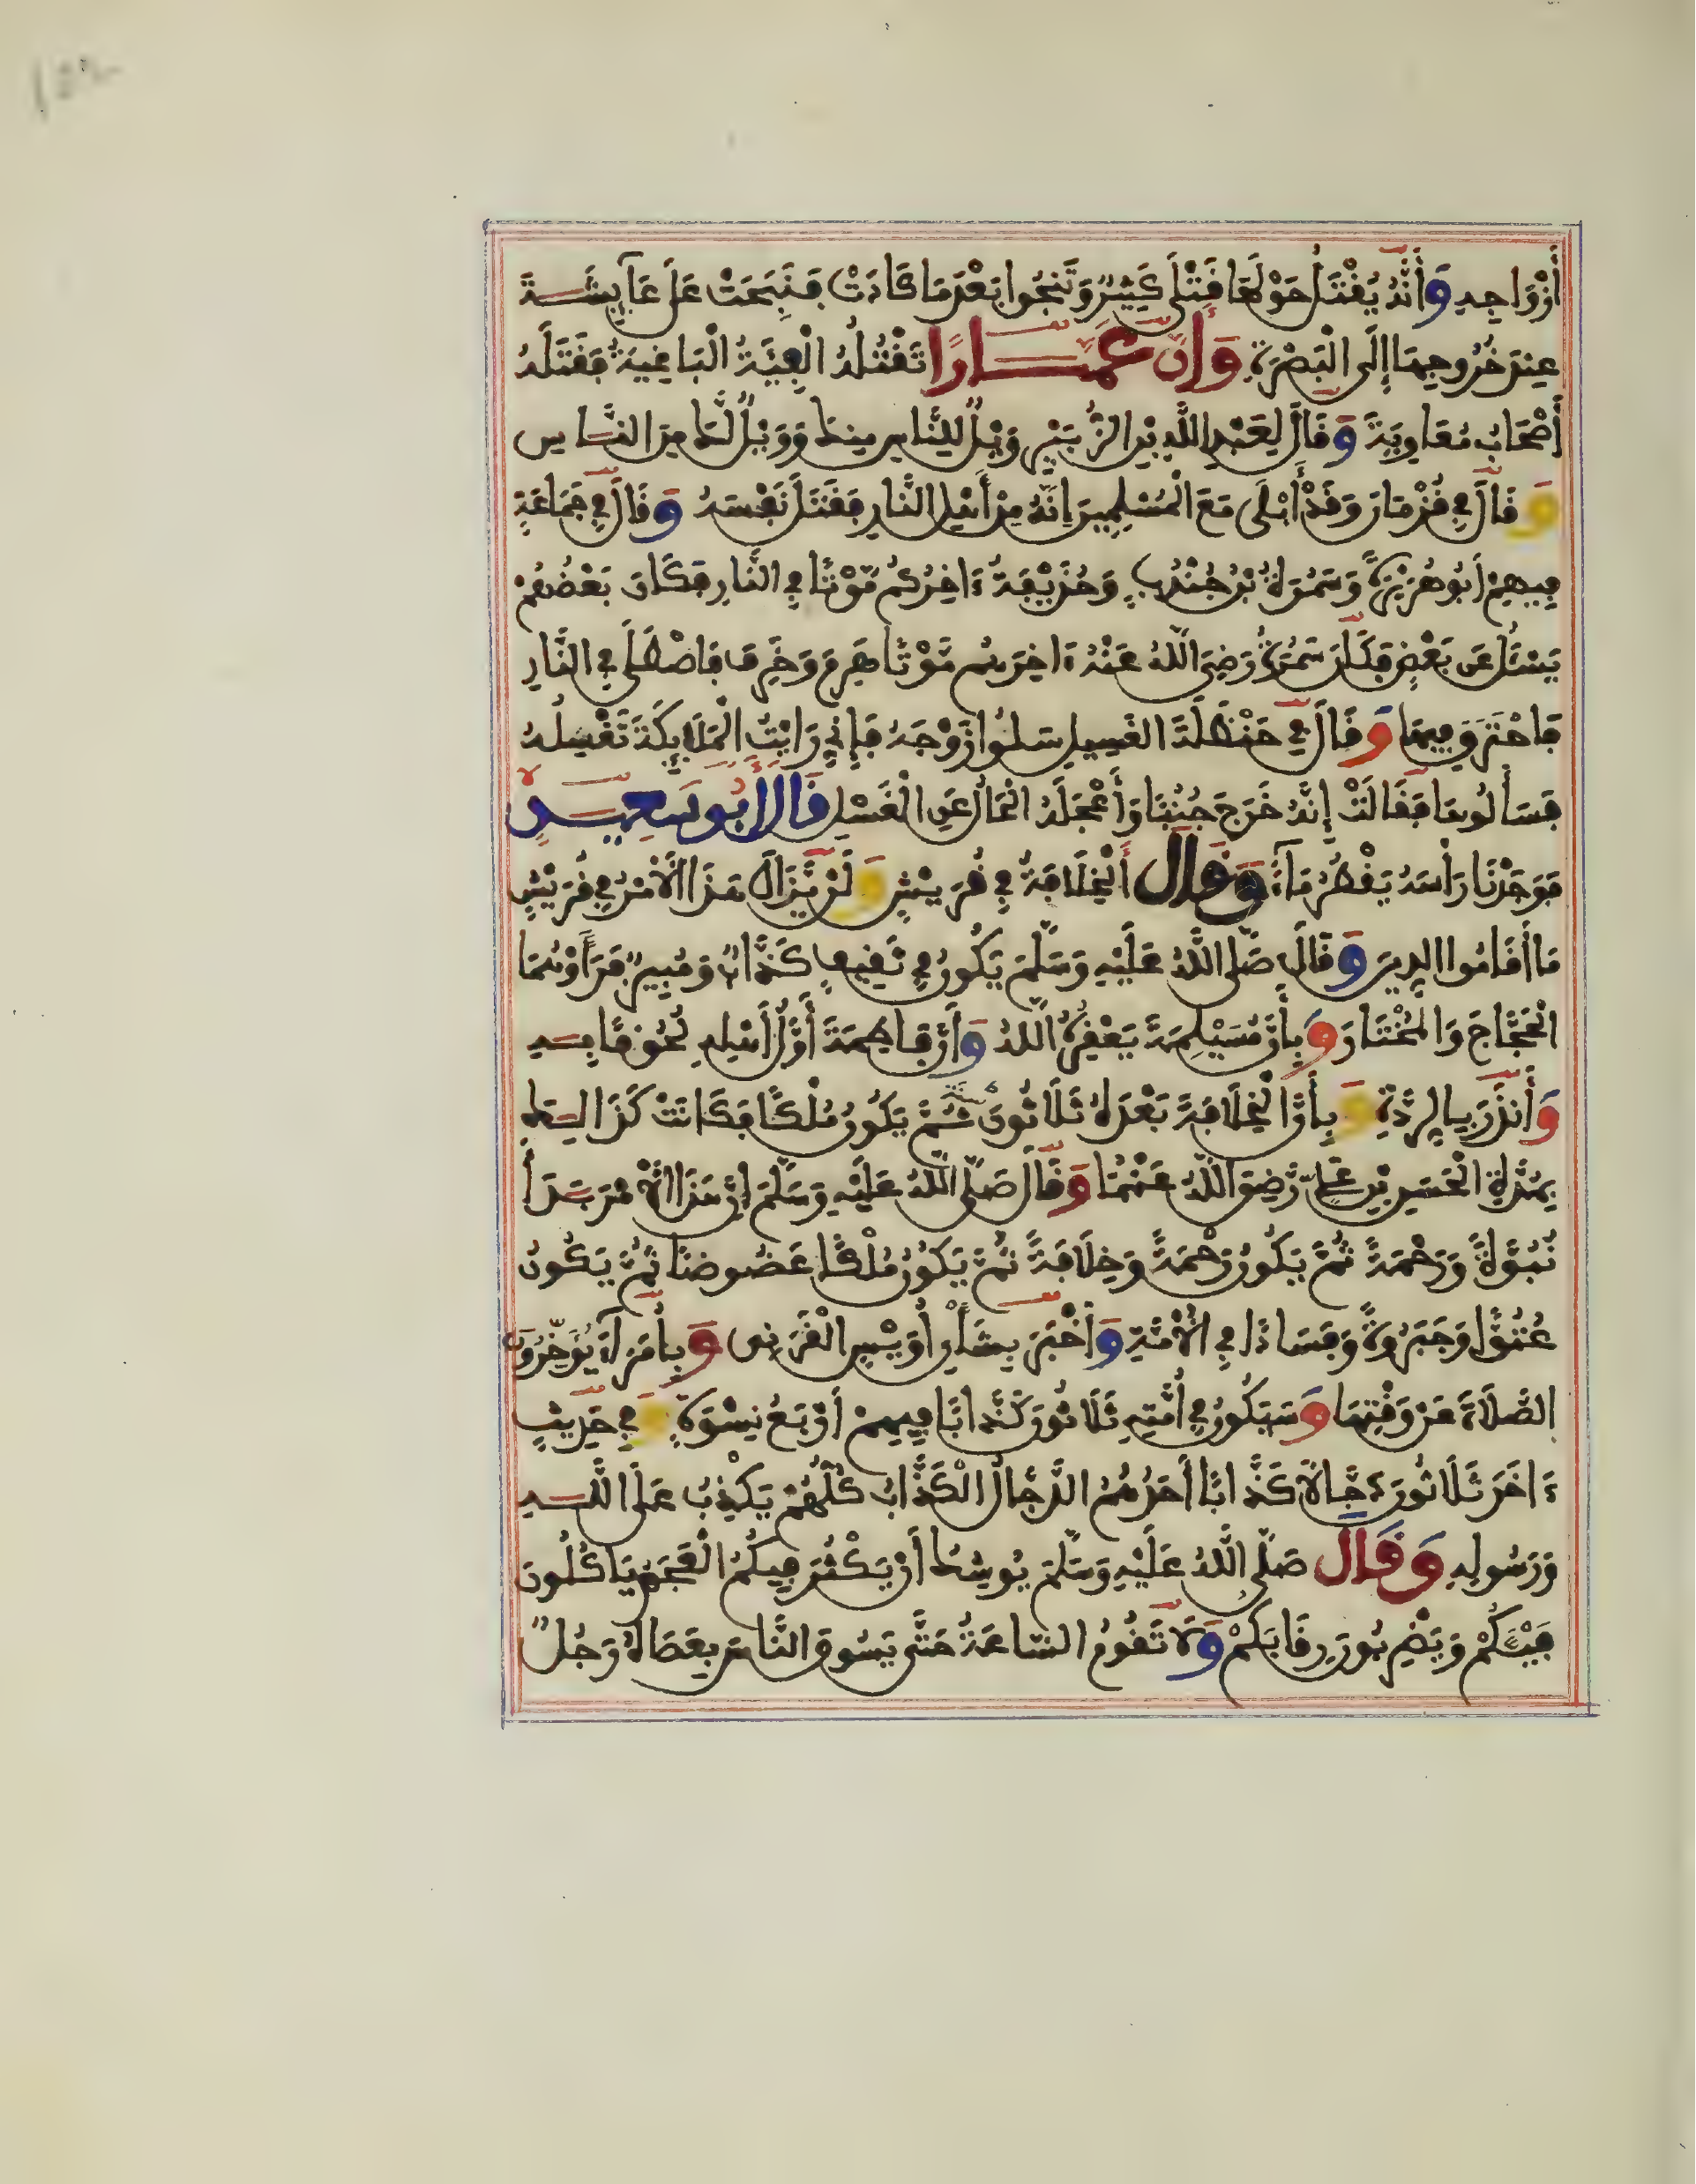 أَزْوَاجِهِ وَأَنَّهُ يُقْتَلُ حَوْلَهَا قَتْلَى كَثِيرٌ وَتَنْجُوا بَعْدَمَا كَادَتْ فَنَبَحَتْ عَلَى عَآئِشَةَ
عِندَ خُرُوجِهَا إِلَى الْبَصْرَةِ وَإِنَّ عَمَّارًا تَقْتُلُهُ الْفِئَةُ الْبَاغِيَةُ فَقَتَلَهُ
أَصْحَابُ مُعَاوِيَةَ وَقَالَ لِعَبْدِ اللَّهِ بْنِ الزُّبَيْرِ وَيْلٌ لِلنَّاسِ مِنكَ وَوَيْلٌ لَّكَ مِنَ النَّاسِ
وَقَالَ فِي قُزْمَانَ وَقَدْ أَبْلَى مَعَ الْمُسْلِمِينَ إِنَّهُ مِنْ أَهْلِ النَّارِ فَقَتَلَ نَفْسَهُ وَقَالَ فِي جَمَاعَةٍ
فِيهِمْ أَبُو هُرَيْرَةَ وَسَمُرَةُ بْنُ جُنْدُبٍ وَحُذَيْفَةُ ءَاخِرُكُمْ مَّوْتًا فِي النَّارِ فَكَانَ بَعْضُهُمْ
يَسْئَلُ عَن بَعْضٍ فَكَانَ سَمُرَةُ رَضِيَ اللَّهُ عَنْهُ ءَاخِرَهُم مَّوْتًا هَرِمَ وَخَرِفَ فَاصْطَلَى فِي النَّارِ
فَاحْتَرَقَ فِيهَا وَقَالَ فِي حَنْظَلَةَ الْغَسِيلِ سَلُوا زَوْجَهُ فَإِنِّي رَايْتُ الْمَلَائِكَةَ تَغْسِلُهُ
فَسَأَلُوهَا فَقَالَتْ إِنَّهُ خَرَجَ جُنُبًا وَأَعْجَلَهُ الْحَالُ عَنِ الْغَسْلِ قَالَ أَبُو سَعِيدٍ
فَوَجَدْنَا رَأْسَهُ يَقْطُرُ مَآءً وَقَالَ الْخِلَافَةُ فِي قُرَيْشٍ وَلَنْ يَّزَالَ هَذَا الْأَمْرُ فِي قُرَيْشٍ
مَا أَقَامُوا الدِينَ وَقَالَ صَلَّى اللَّهُ عَلَيْهِ وَسَلَّمَ يَكُونُ فِي ثَقِيفٍ كَذَّابٌ وَمُبِيرٌ فَرَأَوْهُمَا
الْحَجَّاجَ وَالْمُخْتَارَ وَبِأَنَّ مُسَيْلِمَةَ يَعْقِرُهُ اللَّهُ وَأَنَّ فَاطِمَةَ أَوَّلُ أَهْلِهِ لُحُوقًا بِهِ
وَأَنذَرَ بِالرِدَّةِ وَبِأَنَّ الْخِلَافَةَ بَعْدَهُ ثَلَاثُونَ سَنَةً ثُمَّ يَكُونُ مُلْكًا فَكَانَتْ كَذَالِكَ
بِمُدَّةِ الْحَسَنِ بْنِ عَلِيٍّ رَّضِيَ اللَّهُ عَنْهُمَا وَقَالَ صَلَّى اللَّهُ عَلَيْهِ وَسَلَّمَ إِنَّ هَذَا الْأَمْرَ بَدَأَ
نُبُوَّةً وَرَحْمَةً ثُمَّ يَكُونُ رَحْمَةً وَخِلَافَةً ثُمَّ يَكُونُ مُلْكًا عَضُوضًا ثُمَّ يَكُونُ
عُتُوًّا وَجَبَرُوتًا وَفَسَادًا فِي الْأُمَّةِ وَأَخْبَرَ بِشَأْنِ أُوَيْسٍ الْقَرَنِى وَبِأُمَرَآءَ يُؤَخِّرُونَ
الصَّلَاةَ عَن وَقْتِهَا وَسَيَكُونُ فِي أُمَّتِهِ ثَلَاثُونَ كَذَّابًا فِيهِمْ أَرْبَعُ نِسْوَةٍ وَفِي حَدِيثٍ
ءَاخَرَ ثَلَاثُونَ دَجَّالًا كَذَّابًا أَحَدُهُمُ الدَّجَّالُ الْكَذَّابُ كُلُّهُمْ يَكْذِبُ عَلَى اللَّهِ
وَرَسُولِهِ وَقَالَ صَلَّى اللَّهُ عَلَيْهِ وَسَلَّمَ يُوشِكُ أَنْ يَكْثُرَ فِيكُمُ الْعَجَمُ يَاكُلُونَ
فَيْئَكُمْ وَيَضْرِبُونَ رِقَابَكُمْ وَلَا تَقُومُ السَّاعَةُ حَتَّى يَسُوقَ النَّاسَ بِعَصَاهُ رَجُلٌ